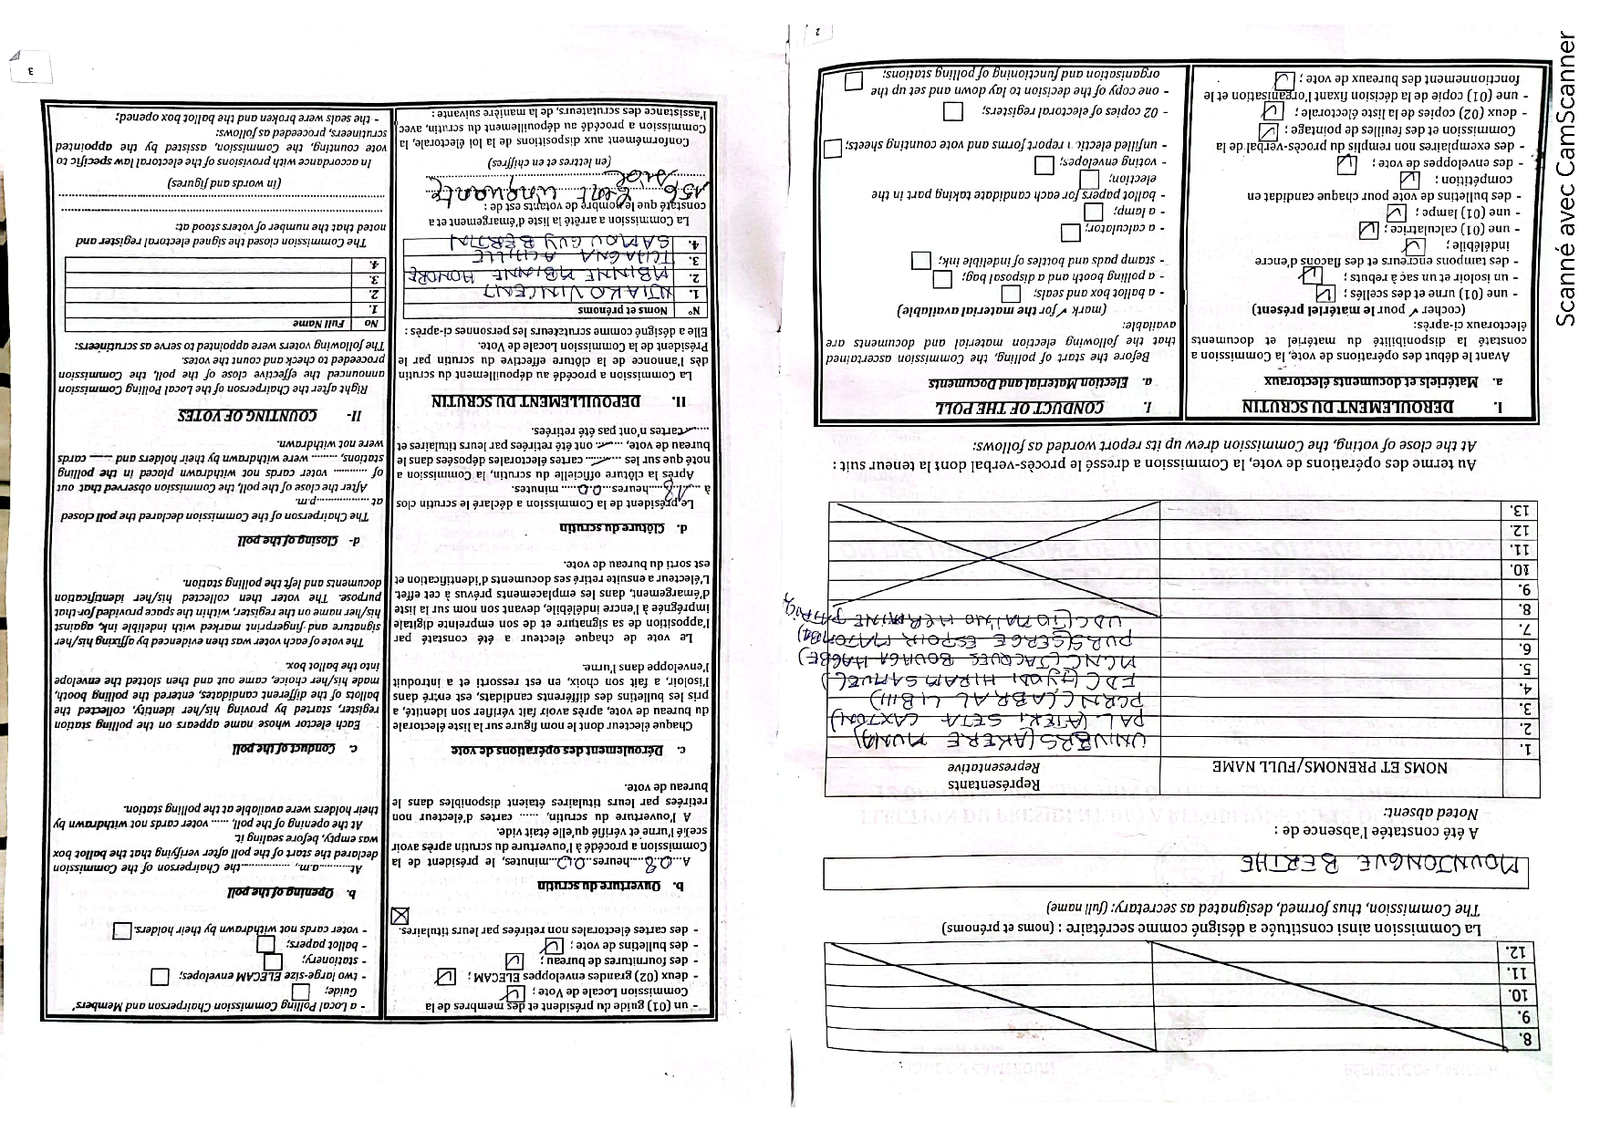 8.
9.
10.
11.
12.
La Commission ainsi constituée a désigné comme secrétaire : (noms et prénoms)
The Commission, thus formed, designated as secretary: (full name)
MOUNJONGUE BERTHE
A été constatée l'absence de :
Noted absent:
NOMS ET PRENOMS/FULL NAME
Représentants
Representative
1. UNIVERS (AKERE MUNA)
2. PAL. (AFIERI SETA CAXTON)
3. PCRN (CABRAL LIBII)
4. FDC (IYODI HIRAM SAMUEL)
5. MCNC (JACQUES BOUAGA HAGBE)
6. PURS (SERGE ESPOIR MATOMBA)
7. UDC (TOMAINO HERMINE PATRICIA)
8.
9.
10.
11.
12.
13.
Au terme des opérations de vote, la Commission a dressé le procès-verbal dont la teneur suit :
At the close of voting, the Commission drew up its report worded as follows:
I. DEROULEMENT DU SCRUTIN
a. Matériels et documents électoraux
Avant le début des opérations de vote, la Commission a
constaté la disponibilité du matériel et documents
électoraux ci-après:
(cocher ✓ pour le matériel présent)
- une (01) urne et des scellés ;
- un isoloir et un sac à rebuts ;
- des tampons encreurs et des flacons d'encre
indélébile ;
- une (01) calculatrice ;
- une (01) lampe ;
- des bulletins de vote pour chaque candidat en
compétition ;
- des enveloppes de vote ;
- des exemplaires non remplis du procès-verbal de la
Commission et des feuilles de pointage ;
- deux (02) copies de la liste électorale ;
- une (01) copie de la décision fixant l'organisation et le
fonctionnement des bureaux de vote ;
I. CONDUCT OF THE POLL
a. Election Material and Documents
Before the start of polling, the Commission ascertained
that the following election material and documents are
available:
(mark ✓ for the material available)
- a ballot box and seals;
- a polling booth and a disposal bag;
- stamp pads and bottles of indelible ink;
- a calculator;
- a lamp;
- ballot papers for each candidate taking part in the
election;
- voting envelopes;
- unfilled election report forms and vote counting sheets;
- 02 copies of electoral registers;
- one copy of the decision to lay down and set up the
organisation and functioning of polling stations;
2
- un (01) guide du président et des membres de la
Commission Locale de Vote ;
- deux (02) grandes enveloppes ELECAM ;
- des fournitures de bureau ;
- des bulletins de vote ;
- des cartes électorales non retirées par leurs titulaires.
b. Ouverture du scrutin
A...08...heures...00...minutes, le président de la
Commission a procédé à l'ouverture du scrutin après avoir
scellé l'urne et vérifié qu'elle était vide.
A l'ouverture du scrutin, ...... cartes d'électeur non
retirées par leurs titulaires étaient disponibles dans le
bureau de vote.
c. Déroulement des opérations de vote
Chaque électeur dont le nom figure sur la liste électorale
du bureau de vote, après avoir fait vérifier son identité, a
pris les bulletins des différents candidats, est entré dans
l'isoloir, a fait son choix, en est ressorti et a introduit
l'enveloppe dans l'urne.
Le vote de chaque électeur a été constaté par
l'apposition de sa signature et de son empreinte digitale
imprégnée à l'encre indélébile, devant son nom sur la liste
d'émargement, dans les emplacements prévus à cet effet.
L'électeur a ensuite retiré ses documents d'identification et
est sorti du bureau de vote.
d. Clôture du scrutin
Le président de la Commission a déclaré le scrutin clos
à ...18...heures...00...... minutes.
Après la clôture officielle du scrutin, la Commission a
noté que sur les ........ cartes électorales déposées dans le
bureau de vote, ....... ont été retirées par leurs titulaires et
........cartes n'ont pas été retirées.
II. DEPOUILLEMENT DU SCRUTIN
La Commission a procédé au dépouillement du scrutin
dès l'annonce de la clôture effective du scrutin par le
Président de la Commission Locale de Vote.
Elle a désigné comme scrutateurs les personnes ci-après :
N° Noms et prénoms
1. NJIAKO VINCENT
2. MBINNE MBINNE HONORE
3. TCHAGNA ACHILLE
4. SAMOU GUY BERTIN
La Commission a arrêté la liste d'émargement et a
constaté que le nombre de votants est de :
156 Cent cinquante
six
(en lettres et en chiffres)
Conformément aux dispositions de la loi électorale, la
Commission a procédé au dépouillement du scrutin, avec
l'assistance des scrutateurs, de la manière suivante :
- a Local Polling Commission Chairperson and Members'
Guide;
- two large-size ELECAM envelopes;
- stationery;
- ballot papers;
- voter cards not withdrawn by their holders.
b. Opening of the poll
At..........a.m., ...............the Chairperson of the Commission
declared the start of the poll after verifying that the ballot box
was empty, before sealing it.
At the opening of the poll, ...... voter cards not withdrawn by
their holders were available at the polling station.
c. Conduct of the poll
Each elector whose name appears on the polling station
register, started by proving his/her identity, collected the
ballots of the different candidates, entered the polling booth,
made his/her choice, came out and then slotted the envelope
into the ballot box.
The vote of each voter was then evidenced by affixing his/her
signature and fingerprint marked with indelible ink, against
his/her name on the register, within the space provided for that
purpose. The voter then collected his/her identification
documents and left the polling station.
d- Closing of the poll
The Chairperson of the Commission declared the poll closed
at ..................p.m.
After the close of the poll, the Commission observed that out
of .......... voter cards not withdrawn placed in the polling
stations, ......... were withdrawn by their holders and ...... cards
were not withdrawn.
II- COUNTING OF VOTES
Right after the Chairperson of the Local Polling Commission
announced the effective close of the poll, the Commission
proceeded to check and count the votes.
The following voters were appointed to serve as scrutineers:
No Full Name
1.
2.
3.
4.
The Commission closed the signed electoral register and
noted that the number of voters stood at:
(in words and figures)
In accordance with provisions of the electoral law specific to
vote counting, the Commission, assisted by the appointed
scrutineers, proceeded as follows:
- the seals were broken and the ballot box opened;
3
Scanné avec CamScanner